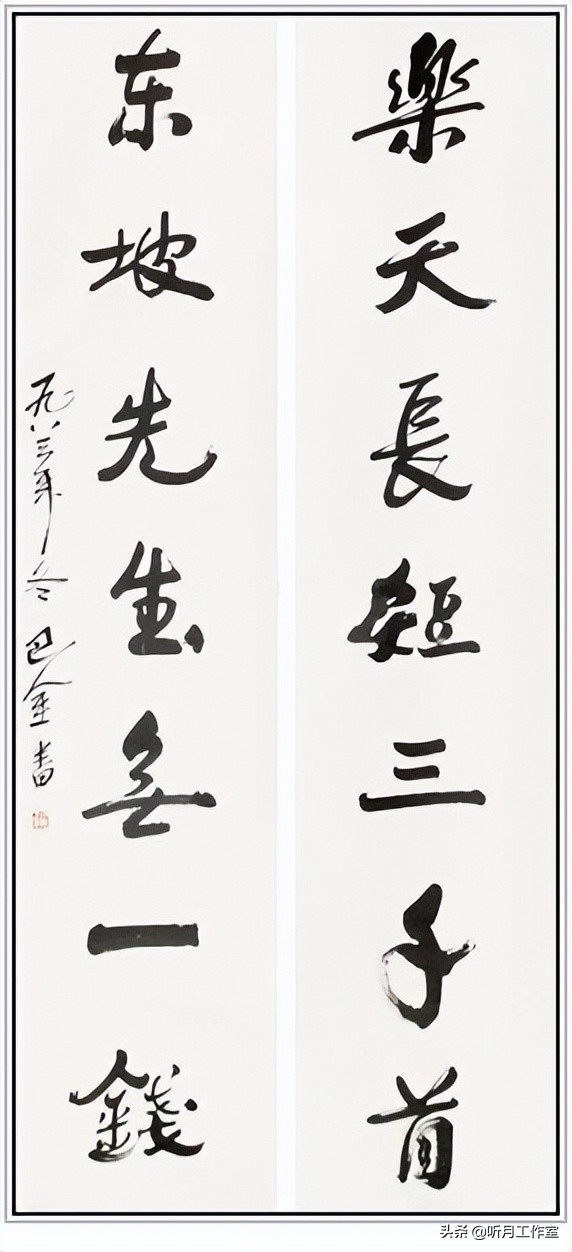 樂天長短三千首
东坡先生無一錢
一九八三年冬 巴金書
头条 @听月工作室